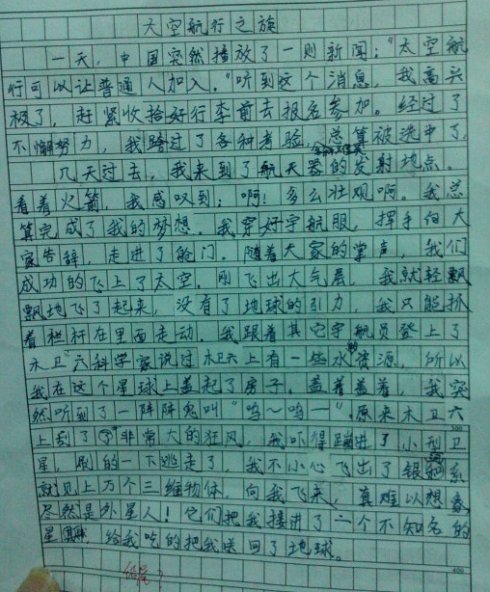 太空航行之旅
一天，中国突然播放了一则新闻："太空航
行可以让普通人加入。"听到这个消息，我高兴
极了，赶紧收拾好行李前去报名参加。经过了
不懈努力，我跨过了各种考验，总算被选中了。
几天过去，我来到了航天器的发射地点。
看着火箭，我感叹到：啊！多么壮观啊。我总
算完成了我的梦想。我穿好宇航服，挥手向大
家告辞，走进了舱门。随着大家的掌声，我们
成功的飞上了太空。刚飞出大气层，我就轻飘
飘地飞了起来，没有了地球的引力，我只能抓
着栏杆在里面走动。我跟着其它宇航员登上了
木卫六科学家说过木卫六上有一些水的资源，所以
我在这个星球上盖起了房子。盖着盖着，我突
然听到了一阵阵鬼叫"呜～呜—"原来木卫六
上刮了非常大的狂风，我吓得蹦进了小型卫
星，刷的一下逃走了，我不小心飞出了银河系
就见上万个三维物体，向我飞来，真难以想象
尽然是外星人！它们把我接进了一个不知名的
星，给我吃的把我送回了地球。
300
400